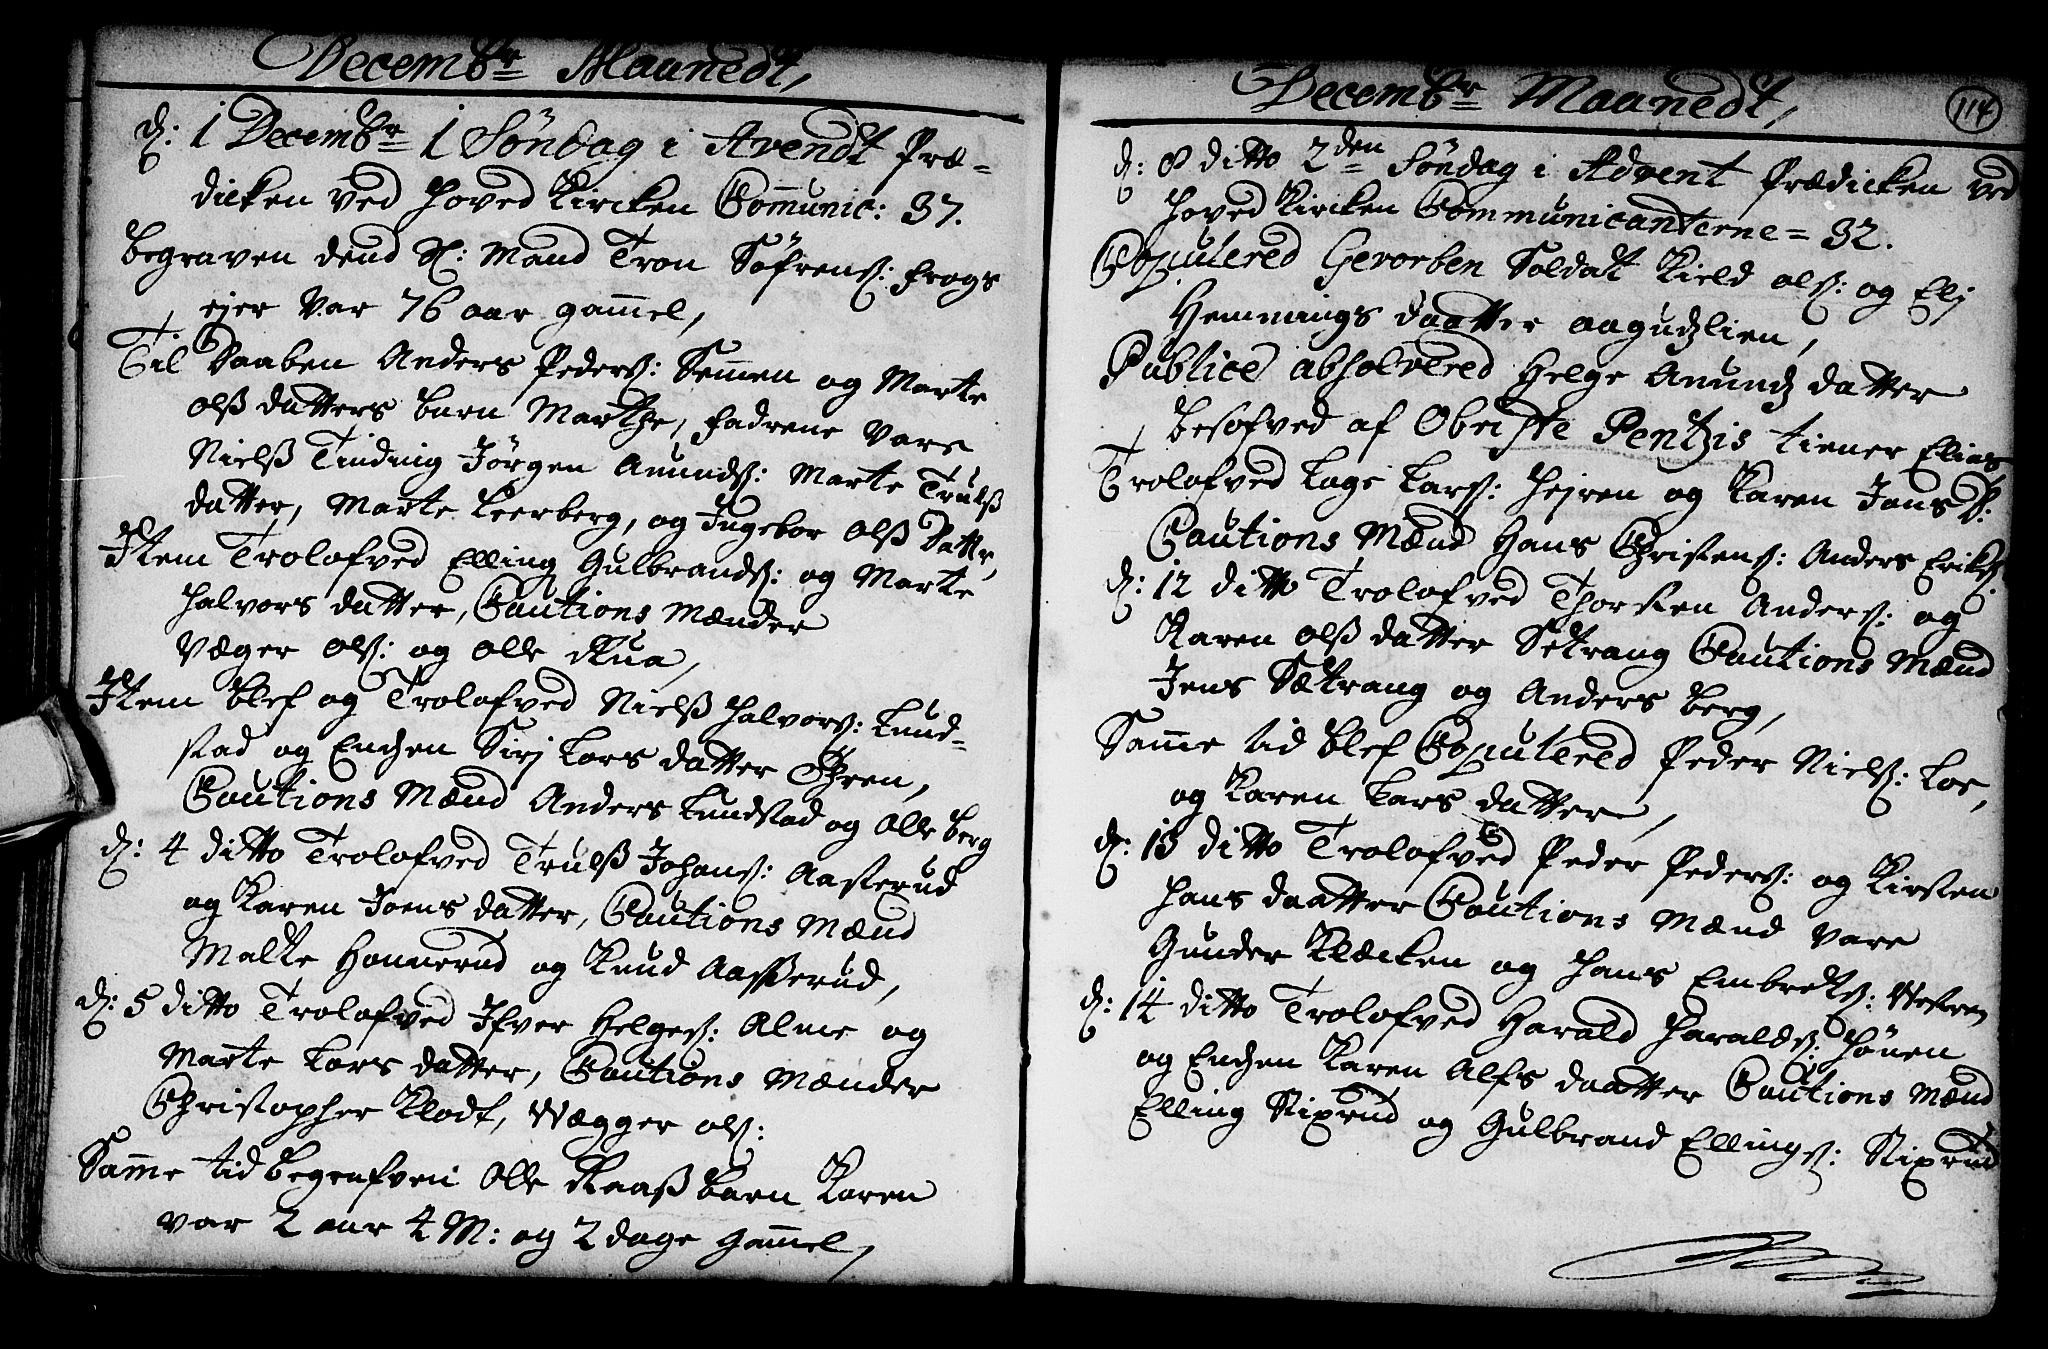 Decembr Maanedt,
d: 1 Decembr 1 Söndag i Avendt Præ-
dicken ved Hoved Kircken Communic: 37.
Begraven dend Sl: Mand Tron Söfrens: Frogs
ejer var 76 aar gamel,
Til Daaben Anders Peders: Semen og Marte
olß datters barn Marthe, Fadrene vare
Nielß Tinding Jörgen Anunds: Marte Trulß
datter, Marte Leerberg, og Ingebor olß Datter,
Item Trolofved Elling Gulbrands: og Marte
Halvors datter, Cautions Mænder
Væger ols: og olle Rua,
Item blef og Trolofved Nielß Halvors: Lund-
stad og Enchen Sirj Lars datter Ihren,
Cautions Mænd Anders Lundstad og olle berg
d: 4 ditto Trolofved Trulß Johans: Aasterud
og Karen Joens datter, Cautions Mænd
Malte Honnerud og Knud Aasterud,
d: 5 ditto Trolofved Ifver Helges: Alme og
Marte Lars datter, Cautions Mænder
Christopher Klodt, Wægger ols:
Same tid begrafven olle Raaß barn Karen
var 2 aar 4 M: og 2 dage gamel,
Decembr Maanedt,
114
d: 8 ditto 2den Söndag i Advent Prædicken ved
Hoved Kircken Communicanterne = 32.
Copulered Gevorben Soldat Kield ols: og Elj
Hemmings daatter
Publice absolvered Helge Anunds datter
besofved af Obriste Pentzis tiener Elias
Trolofved Lage Lars: Hejren og Karen Jans D:
Cautions Mænd Hans Christens: Anders Eriks:
d: 12 ditto Trolofved Thorsten Anders: og
Karen olß datter Setrang Cautions Mænd
Jens Sætrang og Anders berg,
Same tid blef Copulered Peder Niels: Loe,
og Karen Lars datter,
d: 13 ditto Trolofved Peder Peders: og Kirsten
Hans daatter Cautions Mænd vare
Gunder Klæcken og Hans Embrets: Westren
d: 14 ditto Trolofved Harald Haralds: Hönen
og Enchen Karen Alfs daatter Cautions Mænd
Elling Stixrud og Gulbrand Ellings: Stixrud